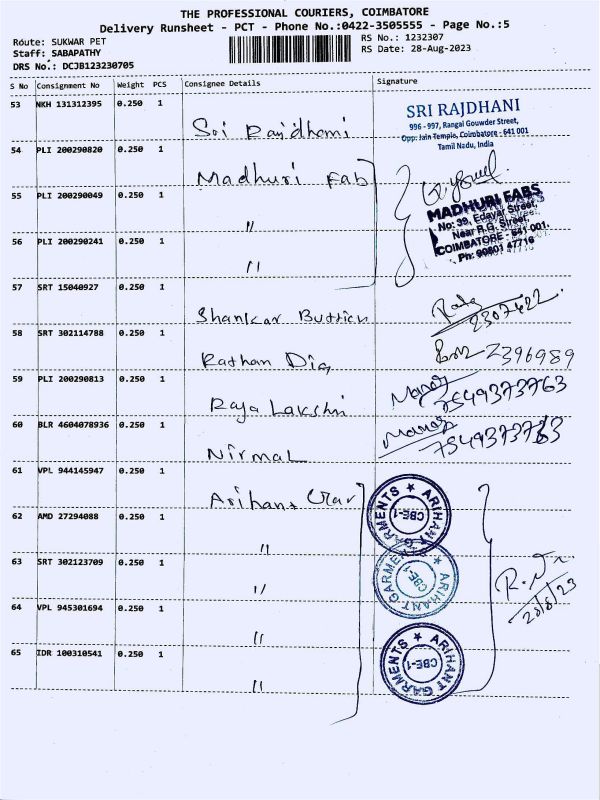 THE PROFESSIONAL COURIERS, COIMBATORE
Delivery Runsheet - PCT - Phone No.:0422-3505555 - Page No.:5
Route: SUKWAR PET
Staff: SABAPATHY
DRS No.: DCJB123230705
RS No.: 1232307
RS Date: 28-Aug-2023
S No Consignment No Weight PCS Consignee Details Signature
53 NKH 131312395 0.250 1
Sri Rajdhani
SRI RAJDHANI
996 - 997, Rangai Gouwder Street,
Opp: Jain Temple, Coimbatore - 641 001
Tamil Nadu, India
54 PLI 200290820 0.250 1
Madhuri Fab
55 PLI 200290049 0.250 1
"
MADHURI FABS
No: 39, Edayar Street,
Near R.G. Street,
COIMBATORE - 641 001.
Ph: 90801 47716
56 PLI 200290241 0.250 1
"
57 SRT 15040927 0.250 1
Shankar Button
2307422
58 SRT 302114788 0.250 1
Rathan Dig
2396989
59 PLI 200290813 0.250 1
Raja Lakshmi
Manoj
7549373763
60 BLR 4604078936 0.250 1
Nirmal
Manoj
7549373763
61 VPL 944145947 0.250 1
Arihant Gar
ARIHANT GARMENTS
CBE-1
62 AMD 27294088 0.250 1
"
63 SRT 302123709 0.250 1
"
ARIHANT GARMENTS
CBE-1
28/8/23
64 VPL 945301694 0.250 1
"
65 IDR 100310541 0.250 1
"
ARIHANT GARMENTS
CBE-1